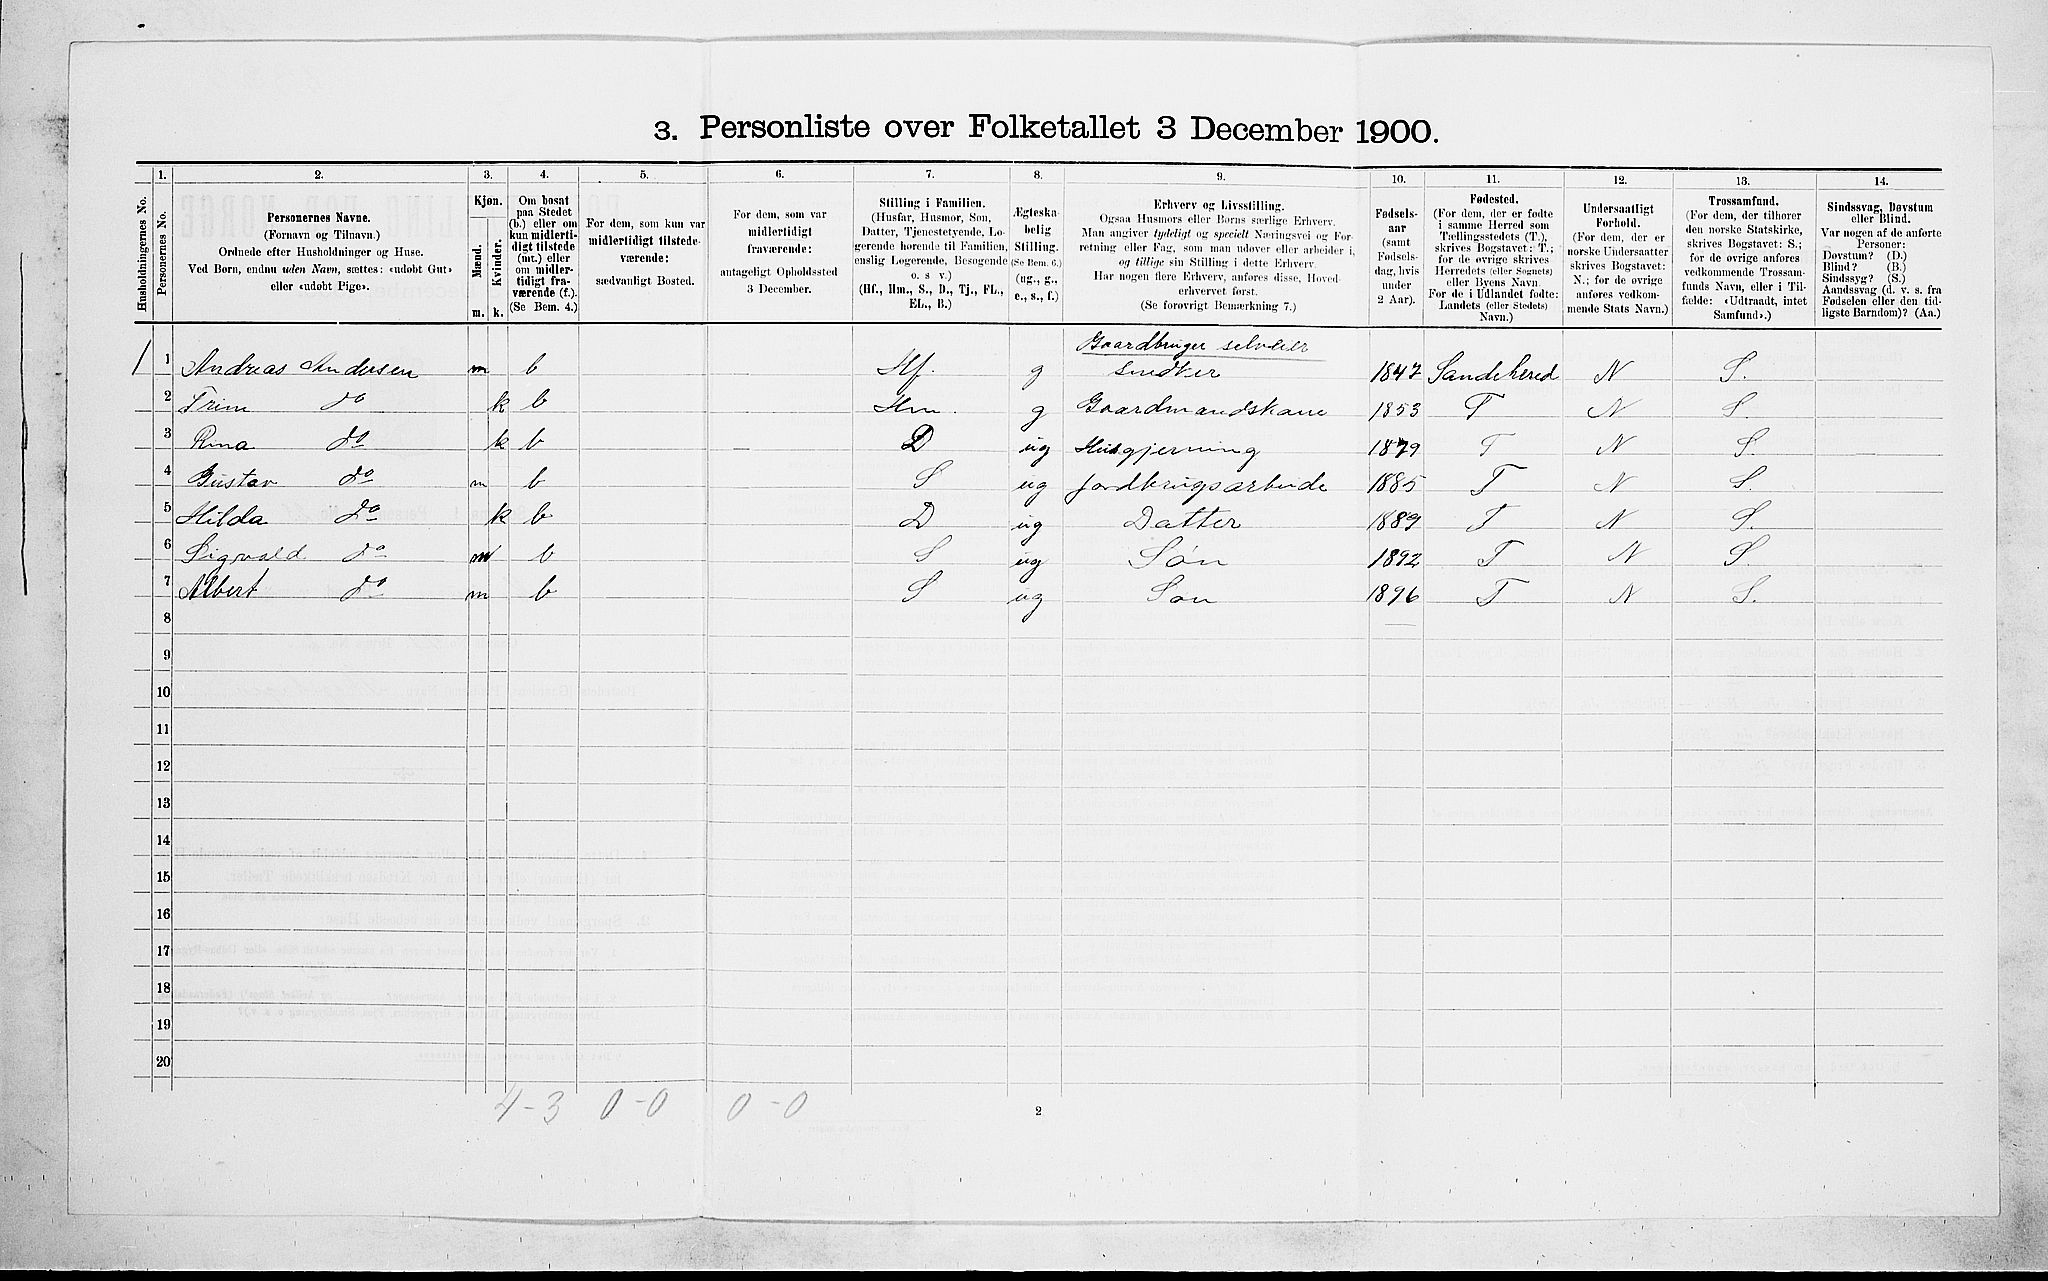 3. Personliste over Folketallet 3 December 1900.
Husholdningernes No.
1.
Personernes No.
2.
Personernes Navne.
(Fornavn og Tilnavn.)
Ordnede efter Husholdninger og Huse.
Ved Børn, endnu uden Navn, sættes: «udøbt Gut»
eller «udøbt Pige».
3.
Kjøn.
Mænd.
Kvinder.
m. k.
4.
Om bosat
paa Stedet
(b.) eller om
kun midlerti-
digt tilstede
(mt.) eller
om midler-
tidigt fra-
værende (f.).
(Se Bem. 4.)
5.
For dem, som kun var
midlertidigt tilstede-
værende:
sædvanligt Bosted.
6.
For dem, som var
midlertidigt
fraværende:
antageligt Opholdssted
3 December.
7.
Stilling i Familien.
(Husfar, Husmor, Søn,
Datter, Tjenestetyende, Lo-
gerende hørende til Familien,
enslig Logerende, Besøgende
o. s. v.)
(Hf., Hm., S., D., Tj., FL.,
EL., B.)
8.
Ægteska-
belig
Stilling.
(Se Bem. 6.)
(ug., g.,
e., s., f.)
9.
Erhverv og Livsstilling.
Ogsaa Husmors eller Børns særlige Erhverv.
Man angiver tydeligt og specielt Næringsvei og For-
retning eller Fag, som man udover eller arbeider i,
og tillige sin Stilling i dette Erhverv.
Har nogen flere Erhverv, anføres disse, Hoved-
erhvervet først.
(Se forøvrigt Bemærkning 7.)
10.
Fødsels-
aar
(samt
Fødsels-
dag, hvis
under
2 Aar).
11.
Fødested.
(For dem, der er fødte
i samme Herred som
Tællingsstedets (T.),
skrives Bogstavet: T.;
for de øvrige skrives
Herredets (eller Sognets)
eller Byens Navn.
For de i Udlandet fødte:
Landets (eller Stedets)
Navn.)
12.
Undersaatligt
Forhold.
(For dem, der er
norske Undersaatter
skrives Bogstavet:
N.; for de øvrige
anføres vedkom-
mende Stats Navn.)
13.
Trossamfund.
(For dem, der tilhører
den norske Statskirke,
skrives Bogstavet: S.;
for de øvrige anføres
vedkommende Trossam-
funds Navn, eller i Til-
fælde: «Udtraadt, intet
Samfund».)
14.
Sindssvag, Døvstum
eller Blind.
Var nogen af de anførte
Personer:
Døvstum? (D.)
Blind? (B.)
Sindssyg? (S.)
Aandssvag (d. v. s. fra
Fødselen eller den tid-
ligste Barndom)? (Aa.)
Gaardbruger selveier
1 1 Andreas Andersen m b Hf. g Snedker 1847 Sandeherred N S.
2 Trine do k b Hm. g Gaardmandskone 1853 T N S.
3 Rina do k b — D ug Husgjerning 1879 T N S.
4 Gustav do m b S ug Jordbrugsarbeide 1885 T N S.
5 Hilda do k b D ug Datter 1889 T N S.
6 Sigvald do m b S ug Søn 1892 T N S.
7 Albert do m b S ug Søn 1896 T N S.
8
9
10
11
12
13
14
15
16
17
18
19
20
4-3 0-0 0-0
2